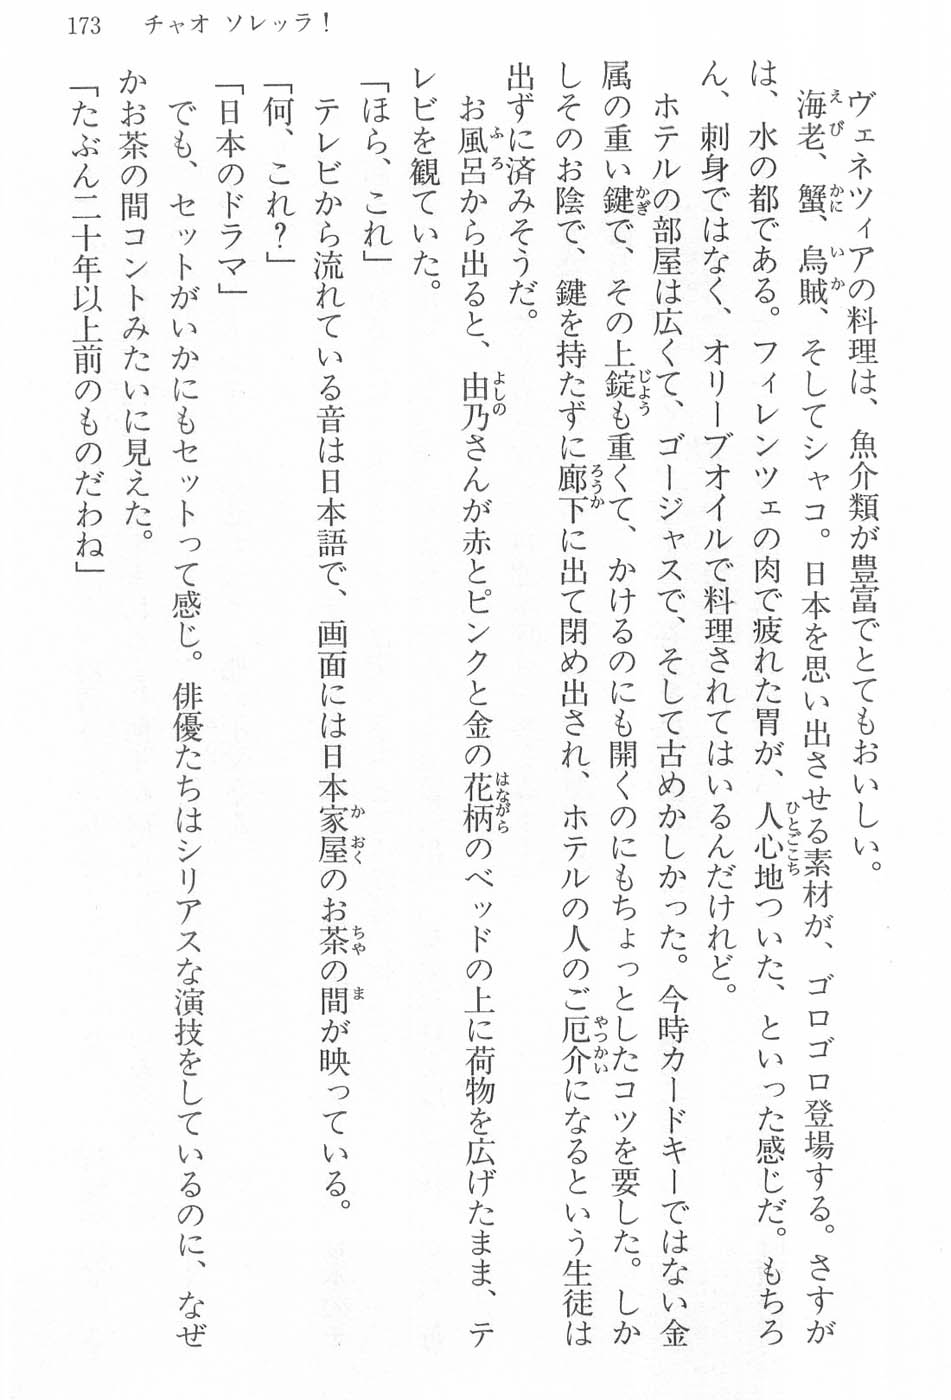 173　チャオ ソレッラ！
　ヴェネツィアの料理は、魚介類が豊富でとてもおいしい。
　海老、蟹、烏賊、そしてシャコ。日本を思い出させる素材が、ゴロゴロ登場する。さすが
は、水の都である。フィレンツェの肉で疲れた胃が、人心地ついた、といった感じだ。もちろ
ん、刺身ではなく、オリーブオイルで料理されてはいるんだけれど。
　ホテルの部屋は広くて、ゴージャスで、そして古めかしかった。今時カードキーではない金
属の重い鍵で、その上錠も重くて、かけるのにも開くのにもちょっとしたコツを要した。しか
しそのお陰で、鍵を持たずに廊下に出て閉め出され、ホテルの人のご厄介になるという生徒は
出ずに済みそうだ。
　お風呂から出ると、由乃さんが赤とピンクと金の花柄のベッドの上に荷物を広げたまま、テ
レビを観ていた。
「ほら、これ」
　テレビから流れている音は日本語で、画面には日本家屋のお茶の間が映っている。
「何、これ？」
「日本のドラマ」
　でも、セットがいかにもセットって感じ。俳優たちはシリアスな演技をしているのに、なぜ
かお茶の間コントみたいに見えた。
「たぶん二十年以上前のものだわね」